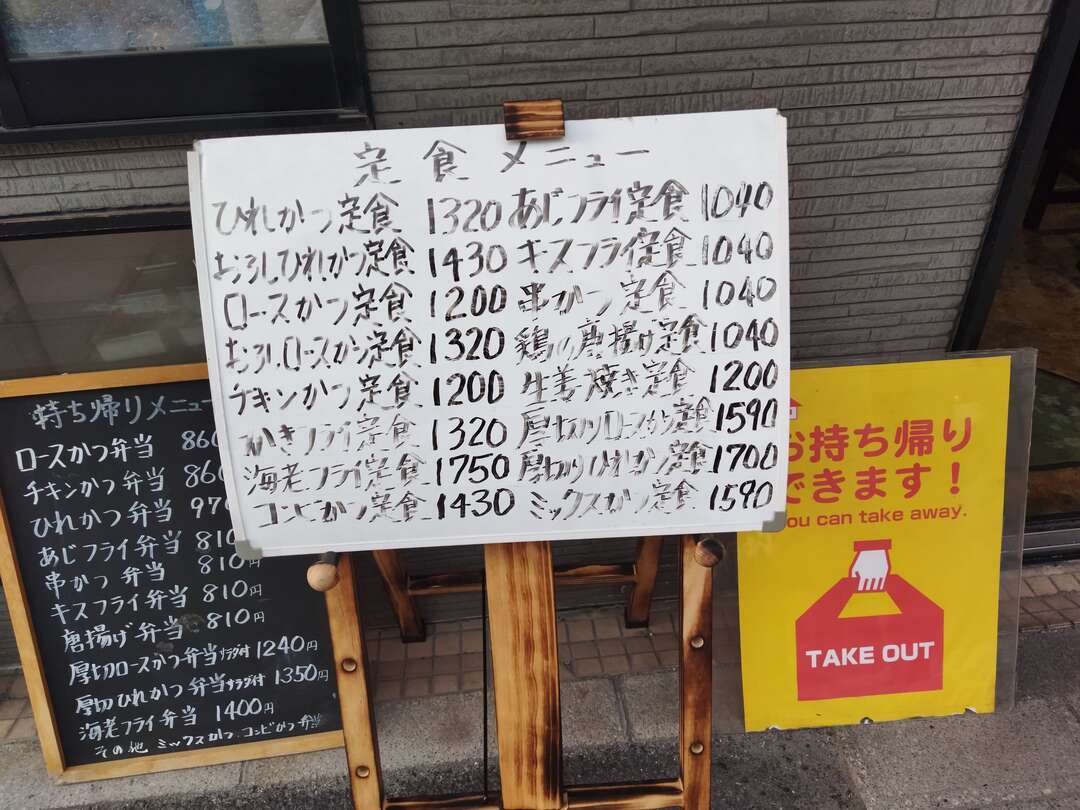 定食メニュー
ひれかつ定食 1320
おろしひれかつ定食 1430
ロースかつ定食 1200
おろしロースかつ定食 1320
チキンかつ定食 1200
かきフライ定食 1320
海老フライ定食 1750
コンビかつ定食 1430
あじフライ定食 1040
キスフライ定食 1040
串かつ定食 1040
鶏の唐揚げ定食 1040
生姜焼き定食 1200
厚切りロースかつ定食 1590
厚切りひれかつ定食 1700
ミックスかつ定食 1590
持ち帰りメニュー
ロースかつ弁当 860
チキンかつ弁当 860
ひれかつ弁当 970
あじフライ弁当 810
串かつ 弁当 810円
キスフライ弁当 810円
唐揚げ弁当 810円
厚切ロースかつ弁当サラダ付 1240円
厚切ひれかつ弁当サラダ付 1350円
海老フライ弁当 1400円
その他 ミックスかつ、コンビかつ弁当
お持ち帰り
できます！
You can take away.
TAKE OUT